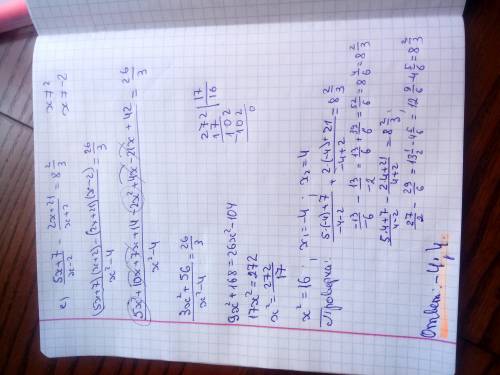 c) (5x+7)/(x-2) - (2x+21)/(x+2) = 8 2/3    x≠2
x≠-2
((5x+7)(x+2) - (2x+21)(x-2))/(x²-4) = 26/3
(5x²+10x+7x+14-2x²+4x-21x+42)/(x²-4) = 26/3
(3x²+56)/(x²-4) = 26/3
9x²+168=26x²-104
17x²=272
x²=272/17
272|17
17 |16
102
-102
0
x²=16; x₁=-4; x₂=4
Проверка:
(5·(-4)+7)/(-4-2) + (2·(-4)+21)/(-4+2) = 8 2/3
-13/-6 - 13/-2 = 13/6 + 13/2 = 52/6 = 8 4/6 = 8 2/3
(5·4+7)/(4-2) - (2·4+21)/(4+2) = 8 2/3;
27/2 - 29/6 = 13 1/2 - 4 5/6 = 12 9/6 - 4 5/6 = 8 2/3
Ответ: -4, 4.